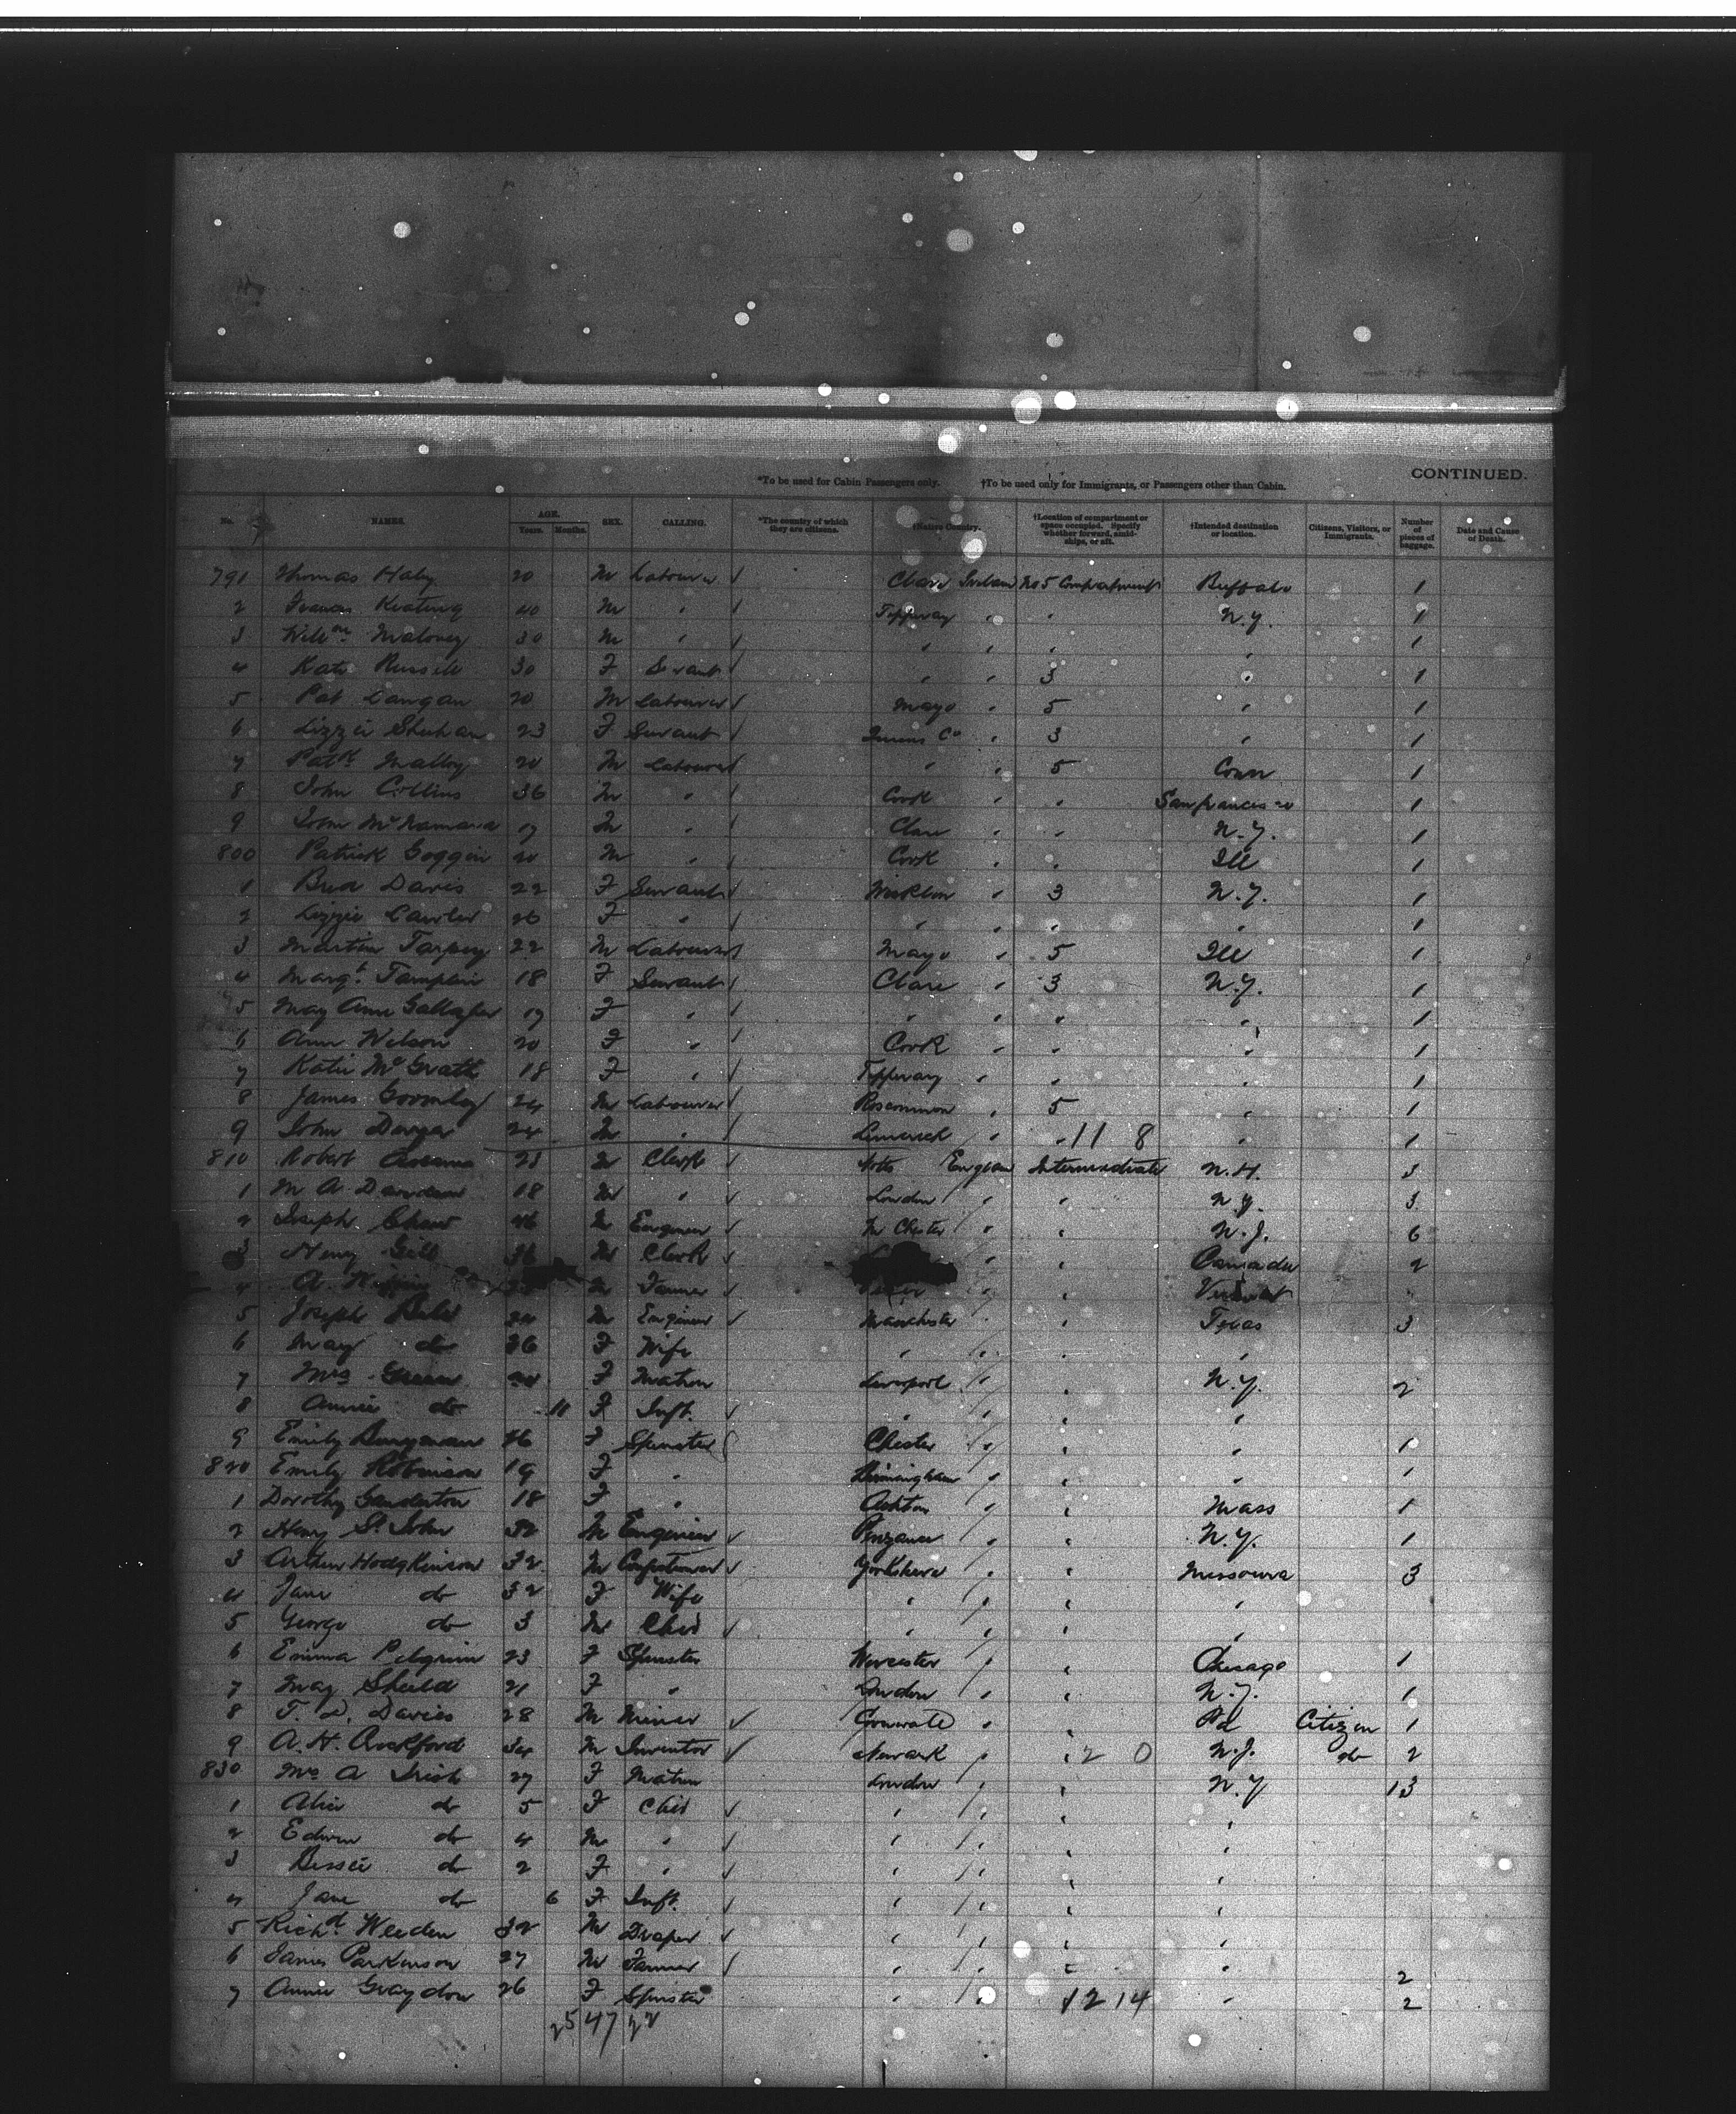 CONTINUED.
*To be used for Cabin Passengers only. †To be used only for Immigrants, or Passengers other than Cabin.
No. NAMES. AGE. Years. Months. SEX. CALLING. *The country of which they are citizens. †Native Country. †Location of compartment or space occupied. Specify whether forward, amidships, or aft. †Intended destination or location. Citizens, Visitors, or Immigrants. Number of pieces of baggage. Date and Cause of Death.
791 Thomas Haly 20 M Labourer √ Clare Ireland No 5 Compartment Buffalo 1
2 Frances Keating 40 M " √ Tipperary " " N.Y. 1
3 Willm Maloney 30 M " √ " " " " 1
4 Kate Russell 30 F Servant √ " " 3 " 1
5 Pat Langan 20 M Labourer √ Mayo " 5 " 1
6 Lizzie Sheehan 23 F Servant √ Queens Co " 3 " 1
7 Patk Malloy 20 M Labourer √ " " 5 Conn 1
8 John Collins 36 M " √ Cork " " San francisco 1
9 John McNamara 19 M " √ Clare " " N.Y. 1
800 Patrick Goggin 20 M " √ Cork " " Ill 1
1 Brid Davis 22 F Servant √ Wicklow " 3 N.Y. 1
2 Lizzie Lawler 26 F " √ " " " " 1
3 Martin Tarpey 22 M Labourer √ Mayo " 5 Ill 1
4 Margt Tamplin 18 F Servant √ Clare " 3 N.Y. 1
5 May Anne Gallagher 19 F " √ " " " " 1
6 Ann Wilson 20 F " √ Cork " " " 1
7 Katie McGrath 18 F " √ Tipperary " " " 1
8 James Gormley 24 M Labourer √ Roscommon " 5 " 1
9 John Dwyer 24 M " √ Limerick " " 11 8 " 1
810 Robert 23 M Clerk √ Notts England Intermediate N.H. 3
1 M A Davidson 18 M " √ London " " N.Y. 3
2 Joseph Shaw 46 M Engineer √ M Chester " " N.J. 6
3 Henry Gill 36 M Clerk √ " " Canada 2
4 A. M Farmer √ " " Vermont "
5 Joseph 34 M Engineer √ Manchester " " Texas 3
6 May do 36 F Wife " " " "
7 Mrs Green F Matron Liverpool " " N.Y. 2
8 Annie do 11 F Inft. √ " " " "
9 Emily Berryman 46 F Spinster Chester " " " 1
820 Emily Robinson 19 F " Birmingham " " " 1
1 Dorothy Ganderton 18 F " Ashton " " Mass 1
2 Henry St. John 32 M Engineer √ Penzance " " N.Y. 1
3 Arthur Hodgkinson 32 M Confectioner √ Yorkshire " " Missouri 3
4 Jane do 32 F Wife " " " "
5 George do 3 M Child √ " " " "
6 Emma Pilgrim 23 F Spinster Worcester " " Chicago 1
7 May Sheild 21 F " London " " N.Y. 1
8 T. D. Davies 28 M Miner √ Cornwall " " Pa Citizen 1
9 A. H. Crockford 34 M Inventor √ Newark " " 2 0 N.J. do 2
830 Mrs A Irish 27 F Matron London " " N.Y 13
1 Alice do 5 F Child √ " " " "
2 Edwin do 4 M " √ " " " "
3 Bessie do 2 F " √ " " " "
4 Jane do 6 F Inft. √ " " " "
5 Richd Weeden 32 M Draper √ " " " "
6 James Parkinson 27 M Farmer √ " " " " 2
7 Annie Graydon 26 F Spinster " " 12 14 " 2
25 47 22